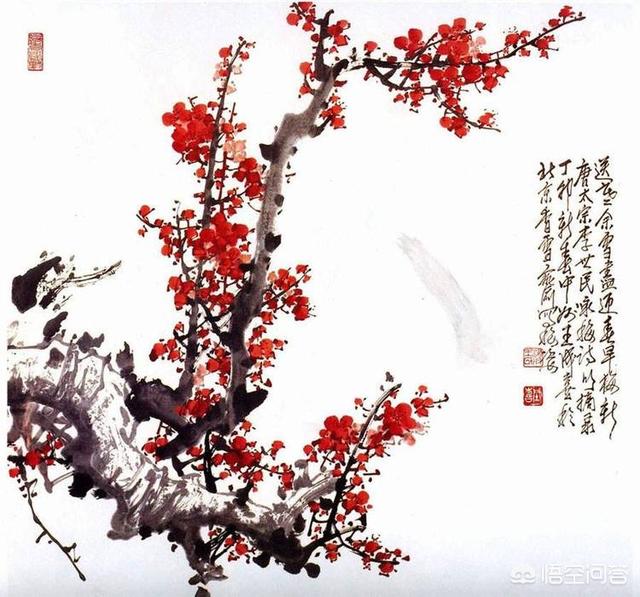 送寒余雪盡迎春早梅新
唐太宗李世民詠梅詩以摘录
丁卯新春中浣王成喜於
北京香雪齋
悟空问答